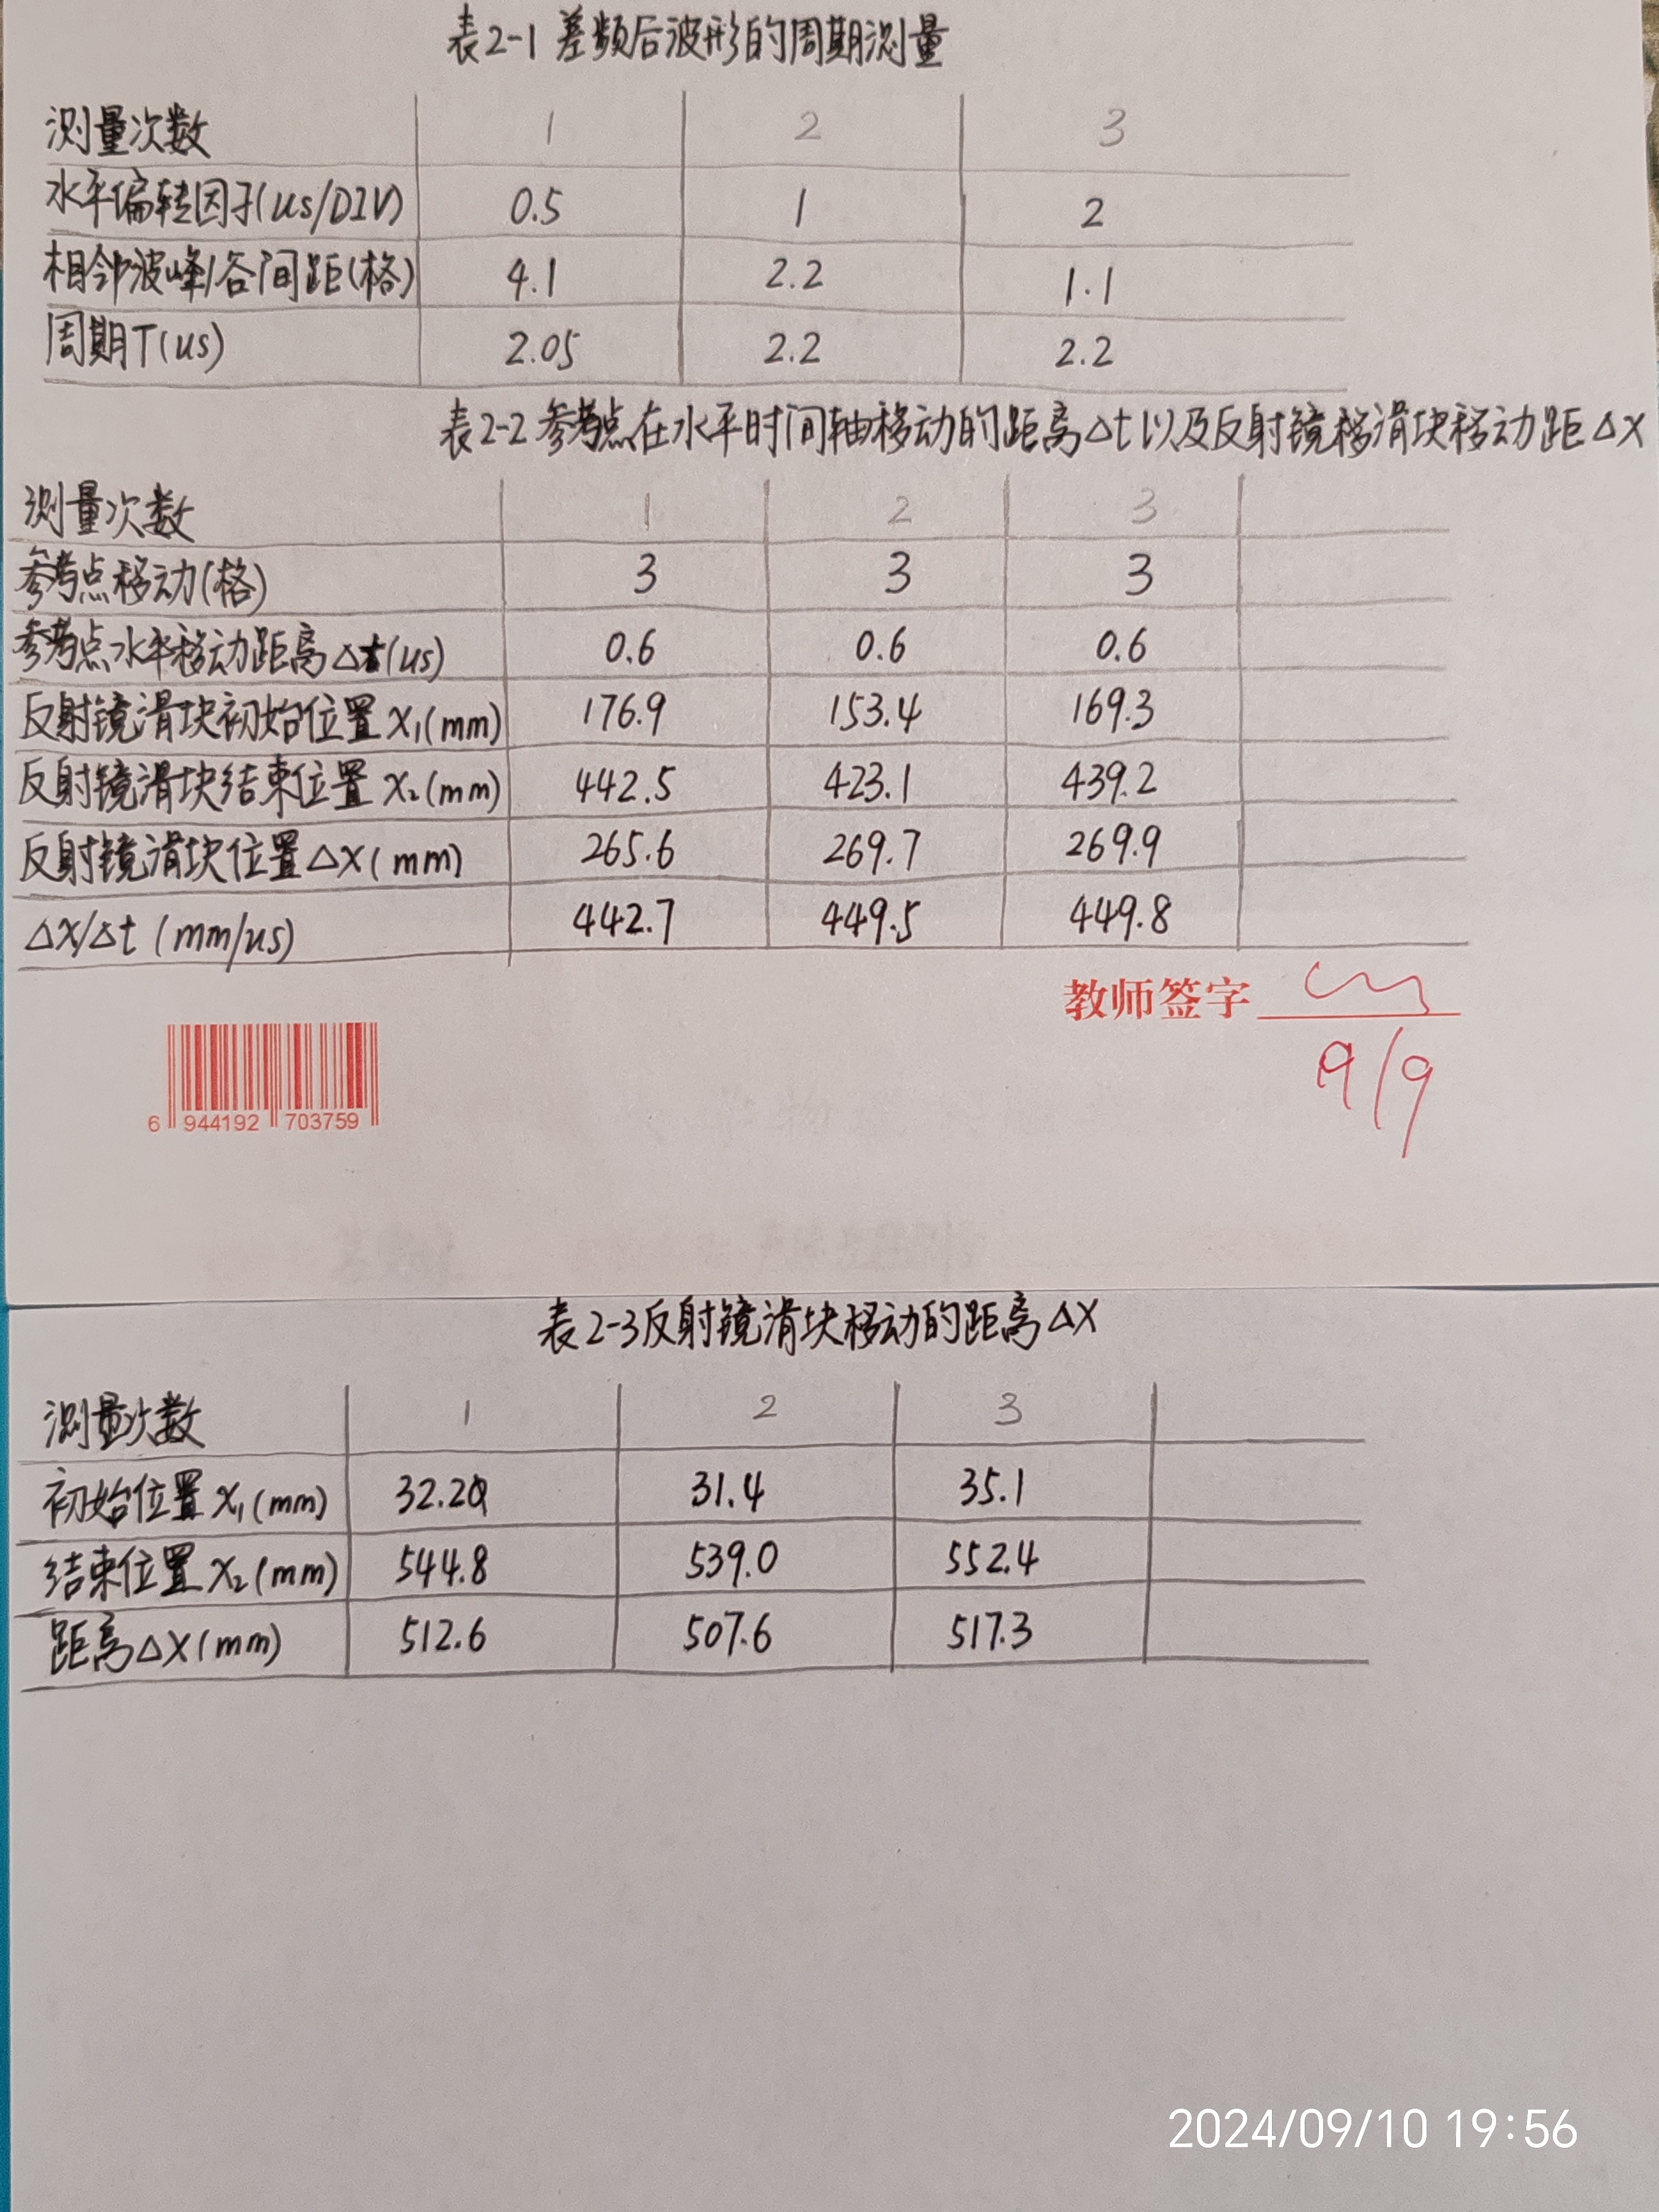 表2-1 差频后波形的周期测量
测量次数 1 2 3
水平偏转因子(us/DIV) 0.5 1 2
相邻波峰/谷间距(格) 4.1 2.2 1.1
周期T(us) 2.05 2.2 2.2
表2-2 参考点在水平时间轴移动的距离Δt以及反射镜移滑块移动距ΔX
测量次数 1 2 3
参考点移动(格) 3 3 3
参考点水平移动距离Δt(us) 0.6 0.6 0.6
反射镜滑块初始位置X₁(mm) 176.9 153.4 169.3
反射镜滑块结束位置X₂(mm) 442.5 423.1 439.2
反射镜滑块位置ΔX(mm) 265.6 269.7 269.9
ΔX/Δt (mm/us) 442.7 449.5 449.8
教师签字
9/9
6 944192 703759
表2-3反射镜滑块移动的距离ΔX
测量次数 1 2 3
初始位置X₁(mm) 32.2 31.4 35.1
结束位置X₂(mm) 544.8 539.0 552.4
距离ΔX(mm) 512.6 507.6 517.3
2024/09/10 19:56